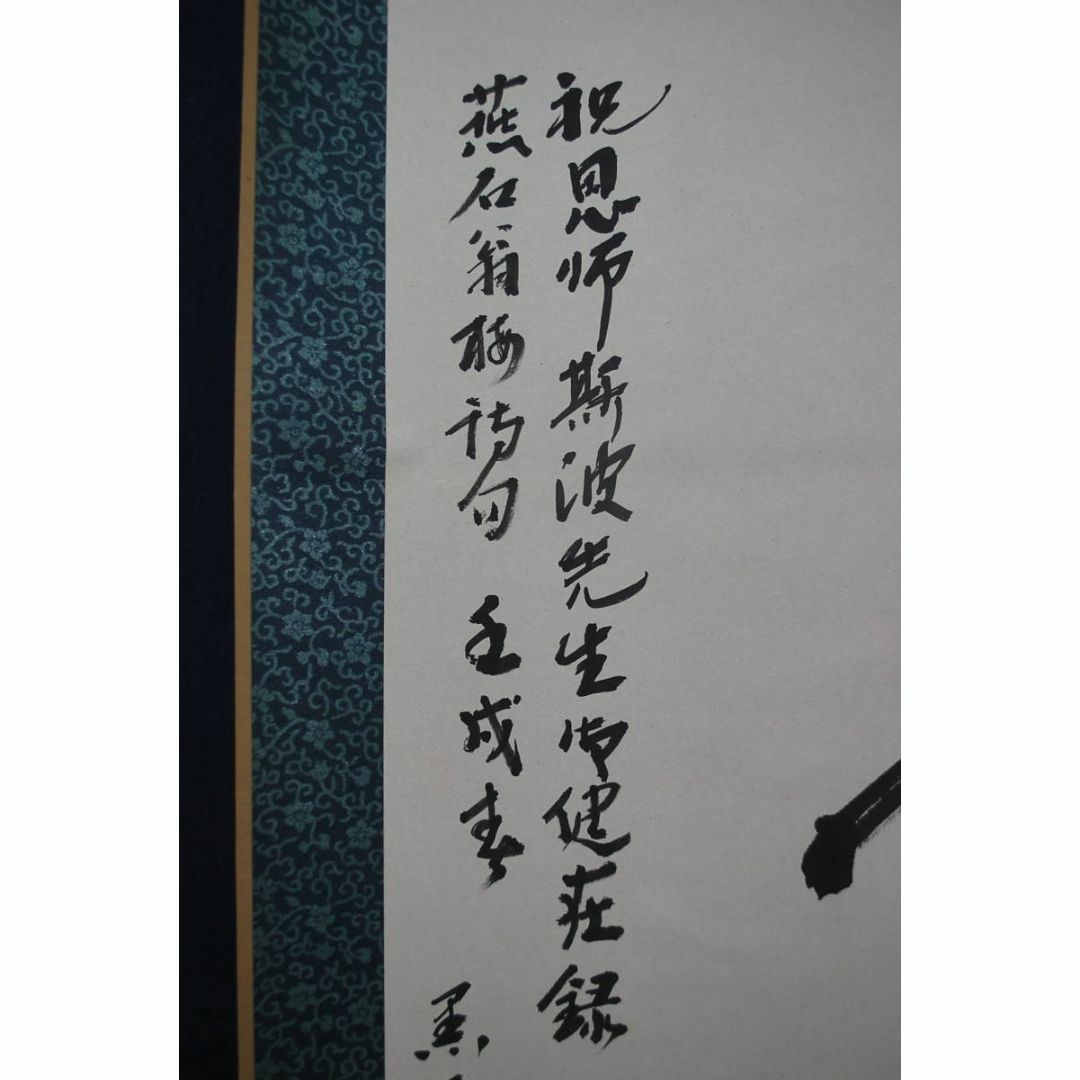 祝恩师斯波先生御健在録
燕石翁梅诗句 壬戌春
黒